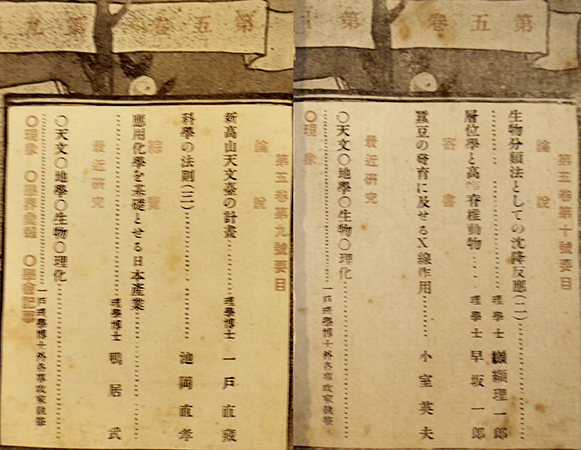 第五卷 第十
第五卷第十號要目
論說
生物分類法としての沈降反應(二)
理學士 纐纈理一郎
層位學と高等脊椎動物
理學士 早坂一郎
寄書
蠶豆の發育に及せるX線作用 小室英夫
最近研究
〇天文〇地學〇生物〇理化
一戶理學博士外各專攻家執筆
〇現象
第五卷 第九
第五卷第九號要目
論說
新高山天文臺の計畫 理學博士 一戶直藏
科學の法則(二) 池岡直孝
綜覽
應用化學を基礎とせる日本產業
理學博士 鴨居武
最近研究
〇天文〇地學〇生物〇理化
一戶理學博士外各專攻家執筆
〇現象 〇學界彙報 〇學會記事